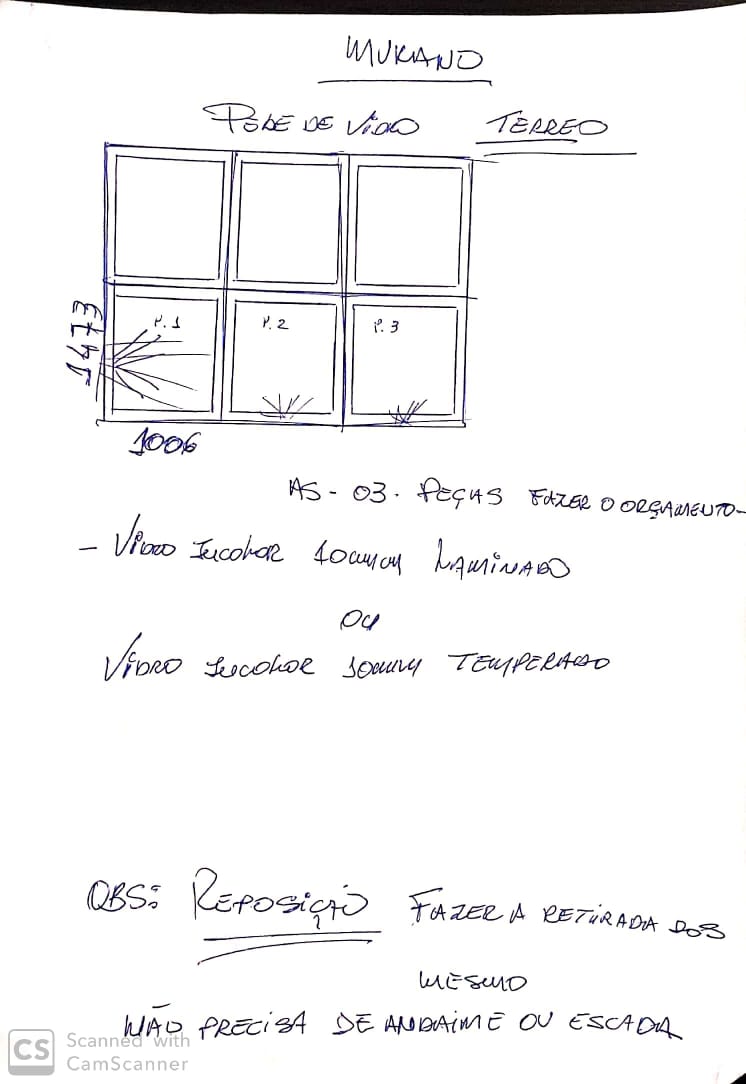 MURANO
PELE DE VIDRO TERREO
P.1 P.2 P.3
1473
1006
AS - 03 - PEÇAS FAZER O ORÇAMENTO -
- VIDRO INCOLOR 10MM LAMINADO
OU
VIDRO INCOLOR 10MM TEMPERADO
OBS: REPOSIÇÃO FAZER A RETIRADA DOS
MESMO
NÃO PRECISA DE ANDAIME OU ESCADA
CS Scanned with
CamScanner